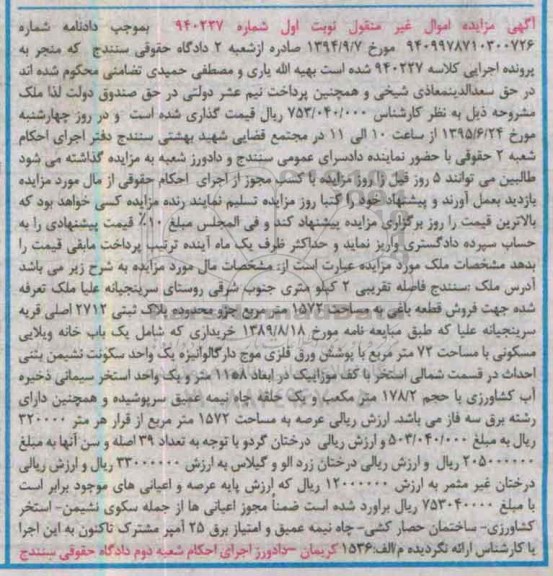 آگهی مزایده اموال غیر منقول نوبت اول شماره ۹۴۰۲۲۷ بموجب دادنامه شماره
۹۴۰۹۹۷۸۷۱۰۳۰۰۷۲۶ مورخ ۱۳۹۴/۹/۷ صادره ازشعبه ۲ دادگاه حقوقی سنندج که منجر به
پرونده اجرایی کلاسه ۹۴۰۲۲۷ شده است بهیه الله یاری و مصطفی حمیدی تضامنی محکوم شده اند
در حق سعدالدینمعاذی شیخی و همچنین پرداخت نیم عشر دولتی در حق صندوق دولت لذا ملک
مشروحه ذیل به نظر کارشناس ۷۵۳/۰۴۰/۰۰۰ ریال قیمت گذاری شده است و در روز چهارشنبه
مورخ ۱۳۹۵/۶/۲۴ از ساعت ۱۰ الی ۱۱ در مجتمع قضایی شهید بهشتی سنندج دفتر اجرای احکام
شعبه ۲ حقوقی با حضور نماینده دادسرای عمومی سنندج و دادورز شعبه به مزایده گذاشته می شود
طالبین می توانند ۵ روز قبل زا روز مزایده با کسب مجوز از اجرای احکام حقوقی از مال مورد مزایده
بازدید بعمل آورند و پیشنهاد خود را کتبا روز مزایده تسلیم نمایند رنده مزایده کسی خواهد بود که
بالاترین قیمت را روز برگزاری مزایده پیشنهاد کند و فی المجلس مبلغ ۱۰٪ قیمت پیشنهادی را به
حساب سپرده دادگستری واریز نماید و حداکثر ظرف یک ماه آینده ترتیب پرداخت مابقی قیمت را
بدهد مشخصات ملک مورد مزایده عبارت است از: مشخصات مال مورد مزایده به شرح زیر می باشد
آدرس ملک :سنندج فاصله تقریبی ۲ کیلو متری جنوب شرقی روستای سرینجیانه علیا ملک تعرفه
شده جهت فروش قطعه باغی به مساحت ۱۵۷۲ متر مربع جزو محدوده پلاک ثبتی ۲۷۱۲ اصلی قریه
سرینجیانه علیا که طبق مبایعه نامه مورخ ۱۳۸۹/۸/۱۸ خریداری که شامل یک باب خانه ویلایی
مسکونی با مساحت ۷۲ متر مربع با پوشش ورق فلزی موج دارگالوانیزه یک واحد سکونت نشیمن بتنی
احداث در قسمت شمالی استخر با کف موزاییک در ابعاد ۸*۱۱۵ متر و یک واحد استخر سیمانی ذخیره
آب کشاورزی با حجم ۱۷۸/۲ متر مکعب و یک حلقه چاه نیمه عمیق سرپوشیده و همچنین دارای
رشته برق سه فاز می باشد. ارزش ریالی عرصه به مساحت ۱۵۷۲ متر مربع از قرار هر متر ۳۲۰۰۰۰
ریال به مبلغ ۵۰۳/۰۴۰/۰۰۰ و ارزش ریالی درختان گردو با توجه به تعداد ۳۹ اصله و سن آنها به مبلغ
۲۰۵۰۰۰۰۰۰ ریال و ارزش ریالی درختان زرد الو و گیلاس به ارزش ۳۳۰۰۰۰۰۰ ریال و ارزش ریالی
درختان غیر مثمر به ارزش ۱۲۰۰۰۰۰۰ ریال که ارزش پایه عرصه و اعیانی های موجود برابر است
با مبلغ ۷۵۳۰۴۰۰۰۰ ریال براورد شده است ضمناً مجوز اعیانی ها از جمله سکوی نشیمن- استخر
کشاورزی- ساختمان حصار کشی- چاه نیمه عمیق و امتیاز برق ۲۵ آمپر مشترک تاکنون به این اجرا
یا کارشناس ارائه نگردیده م/الف:۱۵۳۶ کریمان –دادورز اجرای احکام شعبه دوم دادگاه حقوقی سنندج